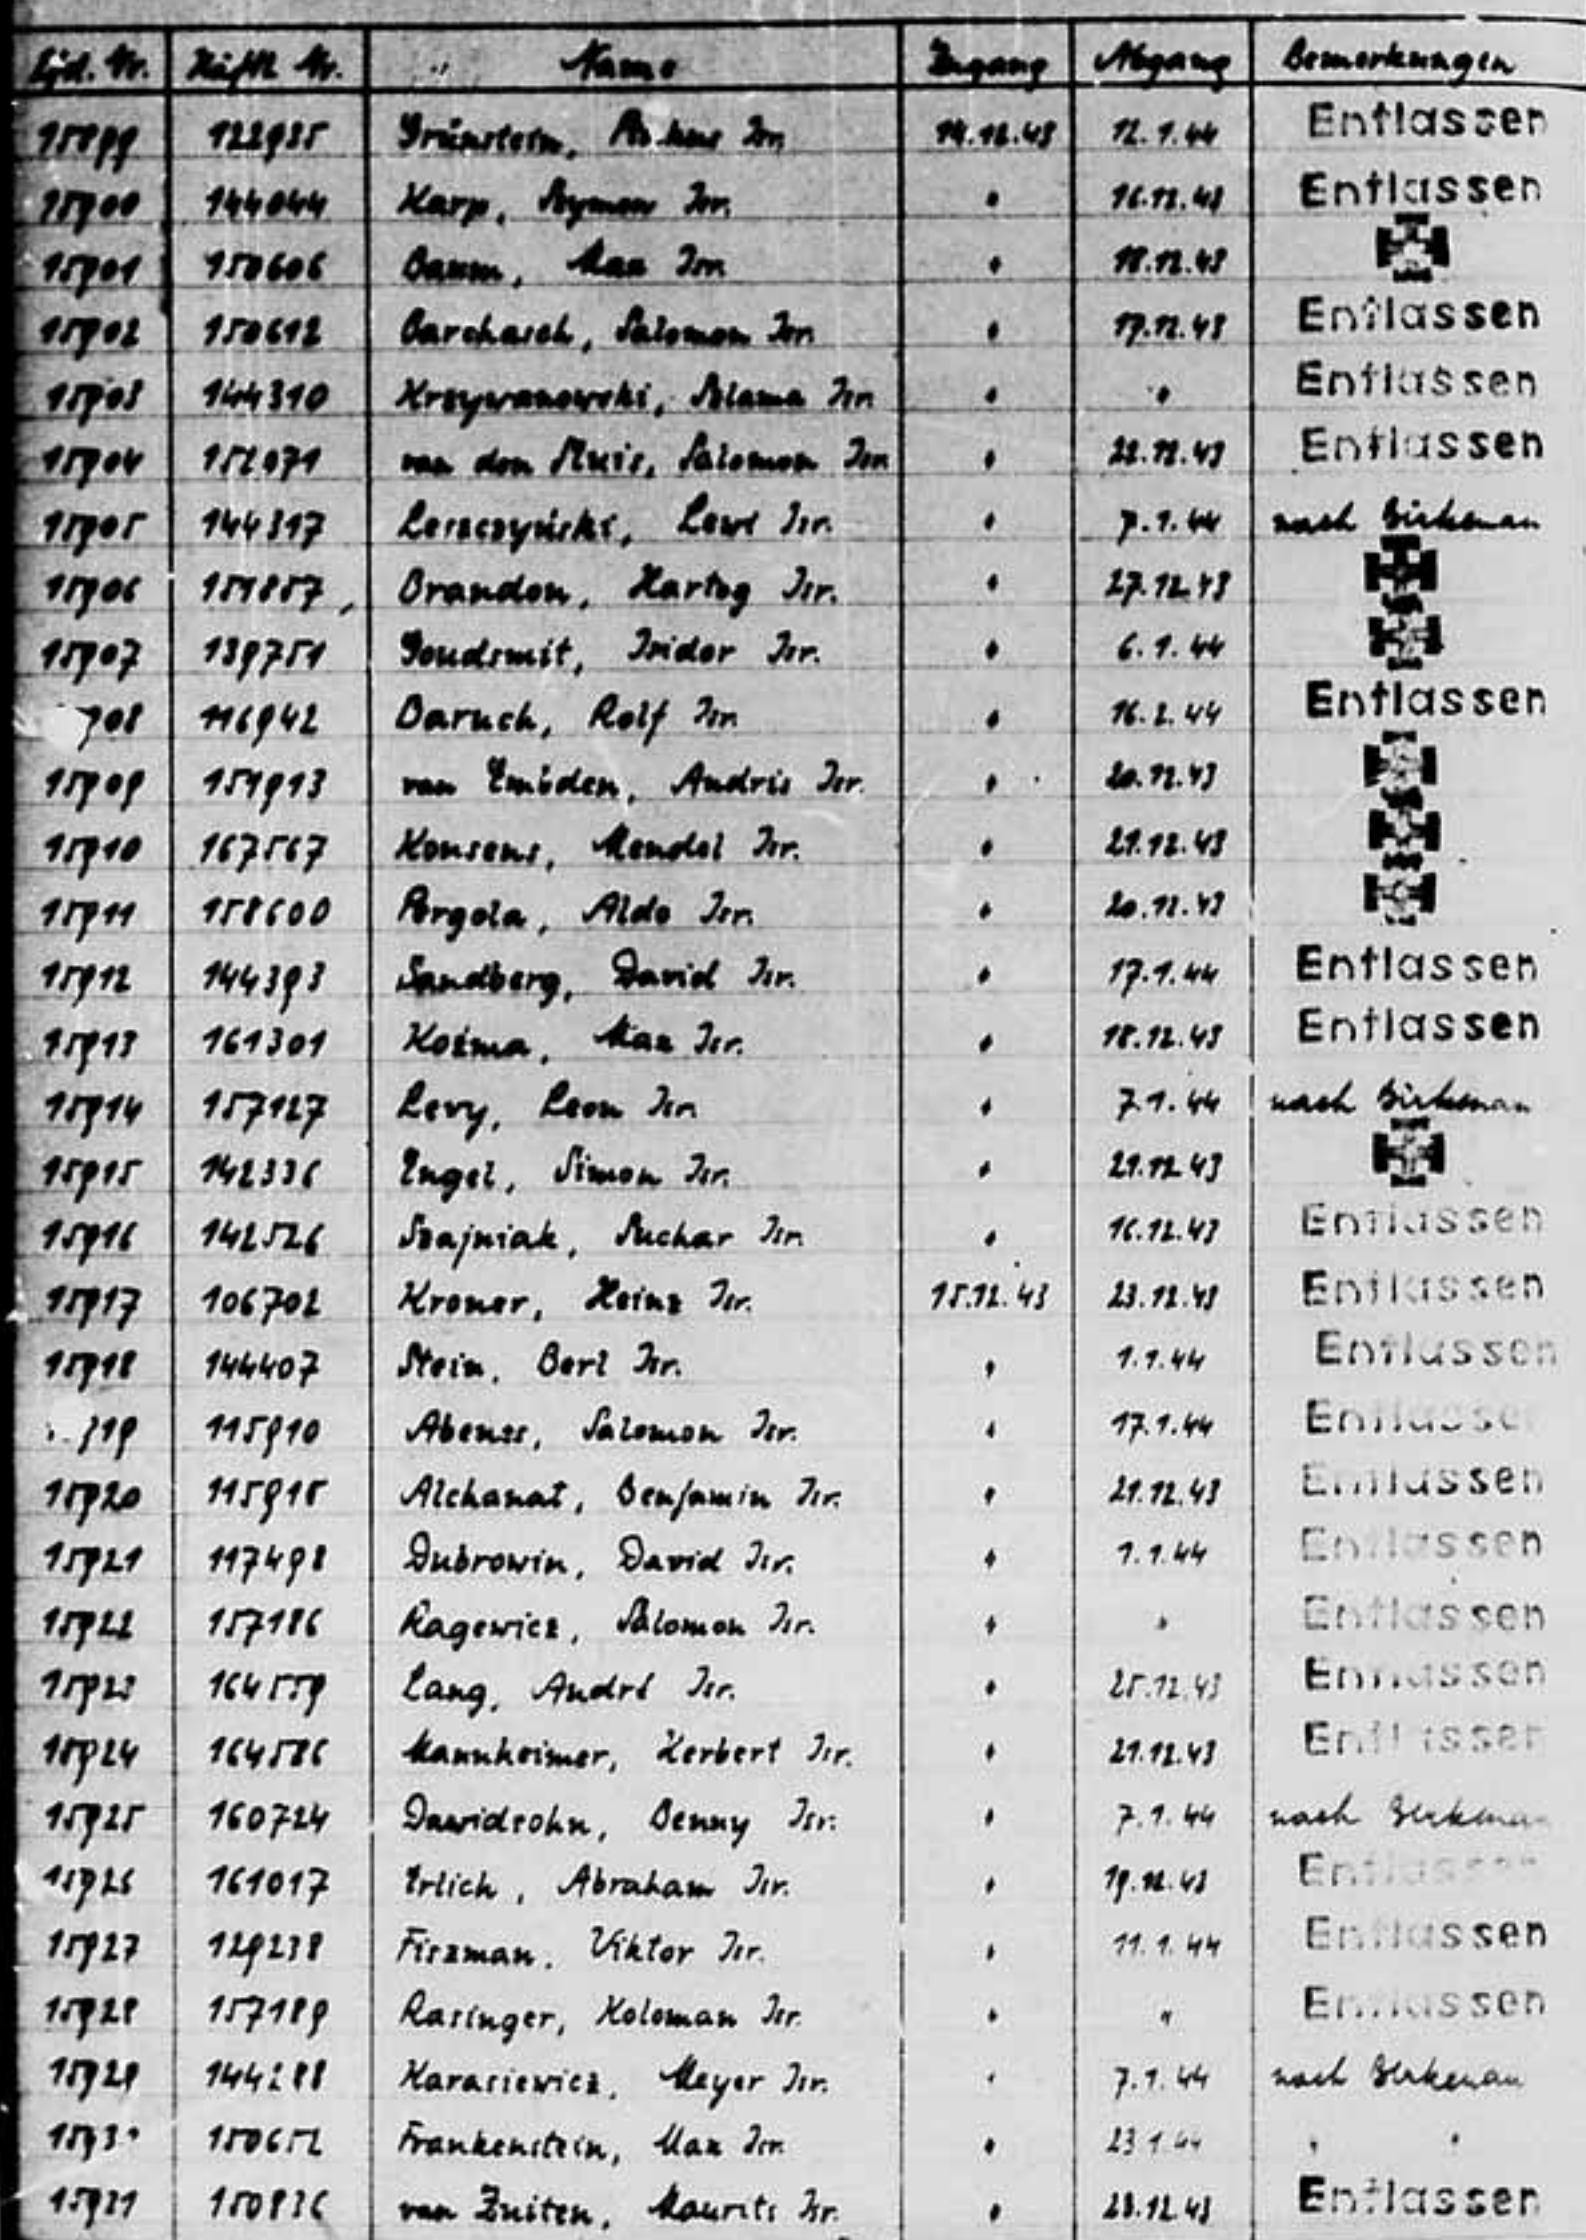 Lfd. Nr. Häftl. Nr. Name Zugang Abgang Bemerkungen
15899 122935 Grünstein, Isr. 14.12.43 12.1.44 Entlassen
15900 144044 Karp, Szymon Isr. " 16.12.43 Entlassen
15901 150606 Baum, Max Isr. " 18.12.43
15902 150612 Barchasch, Salomon Isr. " 17.12.43 Entlassen
15903 144310 Krzywanowski, Szlama Isr. " " Entlassen
15904 152071 van den Sluis, Salomon Isr. " 22.12.43 Entlassen
15905 144317 Leszczyński, Lewi Isr. " 7.1.44 nach Birkenau
15906 151857 Brandon, Hartog Isr. " 27.12.43
15907 139751 Goudsmit, Isidor Isr. " 6.1.44
908 116942 Baruch, Rolf Isr. " 16.2.44 Entlassen
15909 151913 van Embden, Andris Isr. " 20.12.43
15910 167567 Konsens, Mendel Isr. " 21.12.43
15911 158600 Pergola, Aldo Isr. " 20.12.43
15912 144393 Sandberg, David Isr. " 17.1.44 Entlassen
15913 161301 Kozma, Max Isr. " 18.12.43 Entlassen
15914 157127 Levy, Leon Isr. " 7.1.44 nach Birkenau
15915 142336 Engel, Simon Isr. " 21.12.43
15916 142526 Szajniak, Suchar Isr. " 16.12.43 Entlassen
15917 106702 Kroner, Heinz Isr. 15.12.43 23.12.43 Entlassen
15918 144407 Stein, Berl Isr. " 1.1.44 Entlassen
919 115910 Abenes, Salomon Isr. " 17.1.44 Entlassen
15920 115915 Alchanat, Benjamin Isr. " 21.12.43 Entlassen
15921 117498 Dubrowin, David Isr. " 1.1.44 Entlassen
15922 157186 Ragewicz, Salomon Isr. " " Entlassen
15923 164559 Lang, André Isr. " 25.12.43 Entlassen
15924 164586 Mannheimer, Herbert Isr. " 21.12.43 Entlassen
15925 160724 Dawidsohn, Benny Isr. " 7.1.44 nach Birkenau
15926 161017 Erlich, Abraham Isr. " 19.12.43 Entlassen
15927 129238 Fiszman, Viktor Isr. " 11.1.44 Entlassen
15928 157189 Rasinger, Koloman Isr. " " Entlassen
15929 144288 Karasiewicz, Meyer Isr. " 7.1.44 nach Birkenau
1593 150652 Frankenstein, Max Isr. " 23.1.44 " "
15931 150836 van Zuiten, Maurits Isr. " 23.12.43 Entlassen